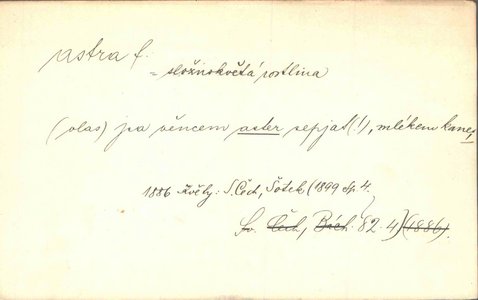 astra f.
= složnokvětá rostlina
(vlas) jsa věncem aster sepjat(!), mlékem kane,
1886 Květy: S. Čech, Šotek (1899 sp. 4.
Sv. Čech, 82-4) (1886).